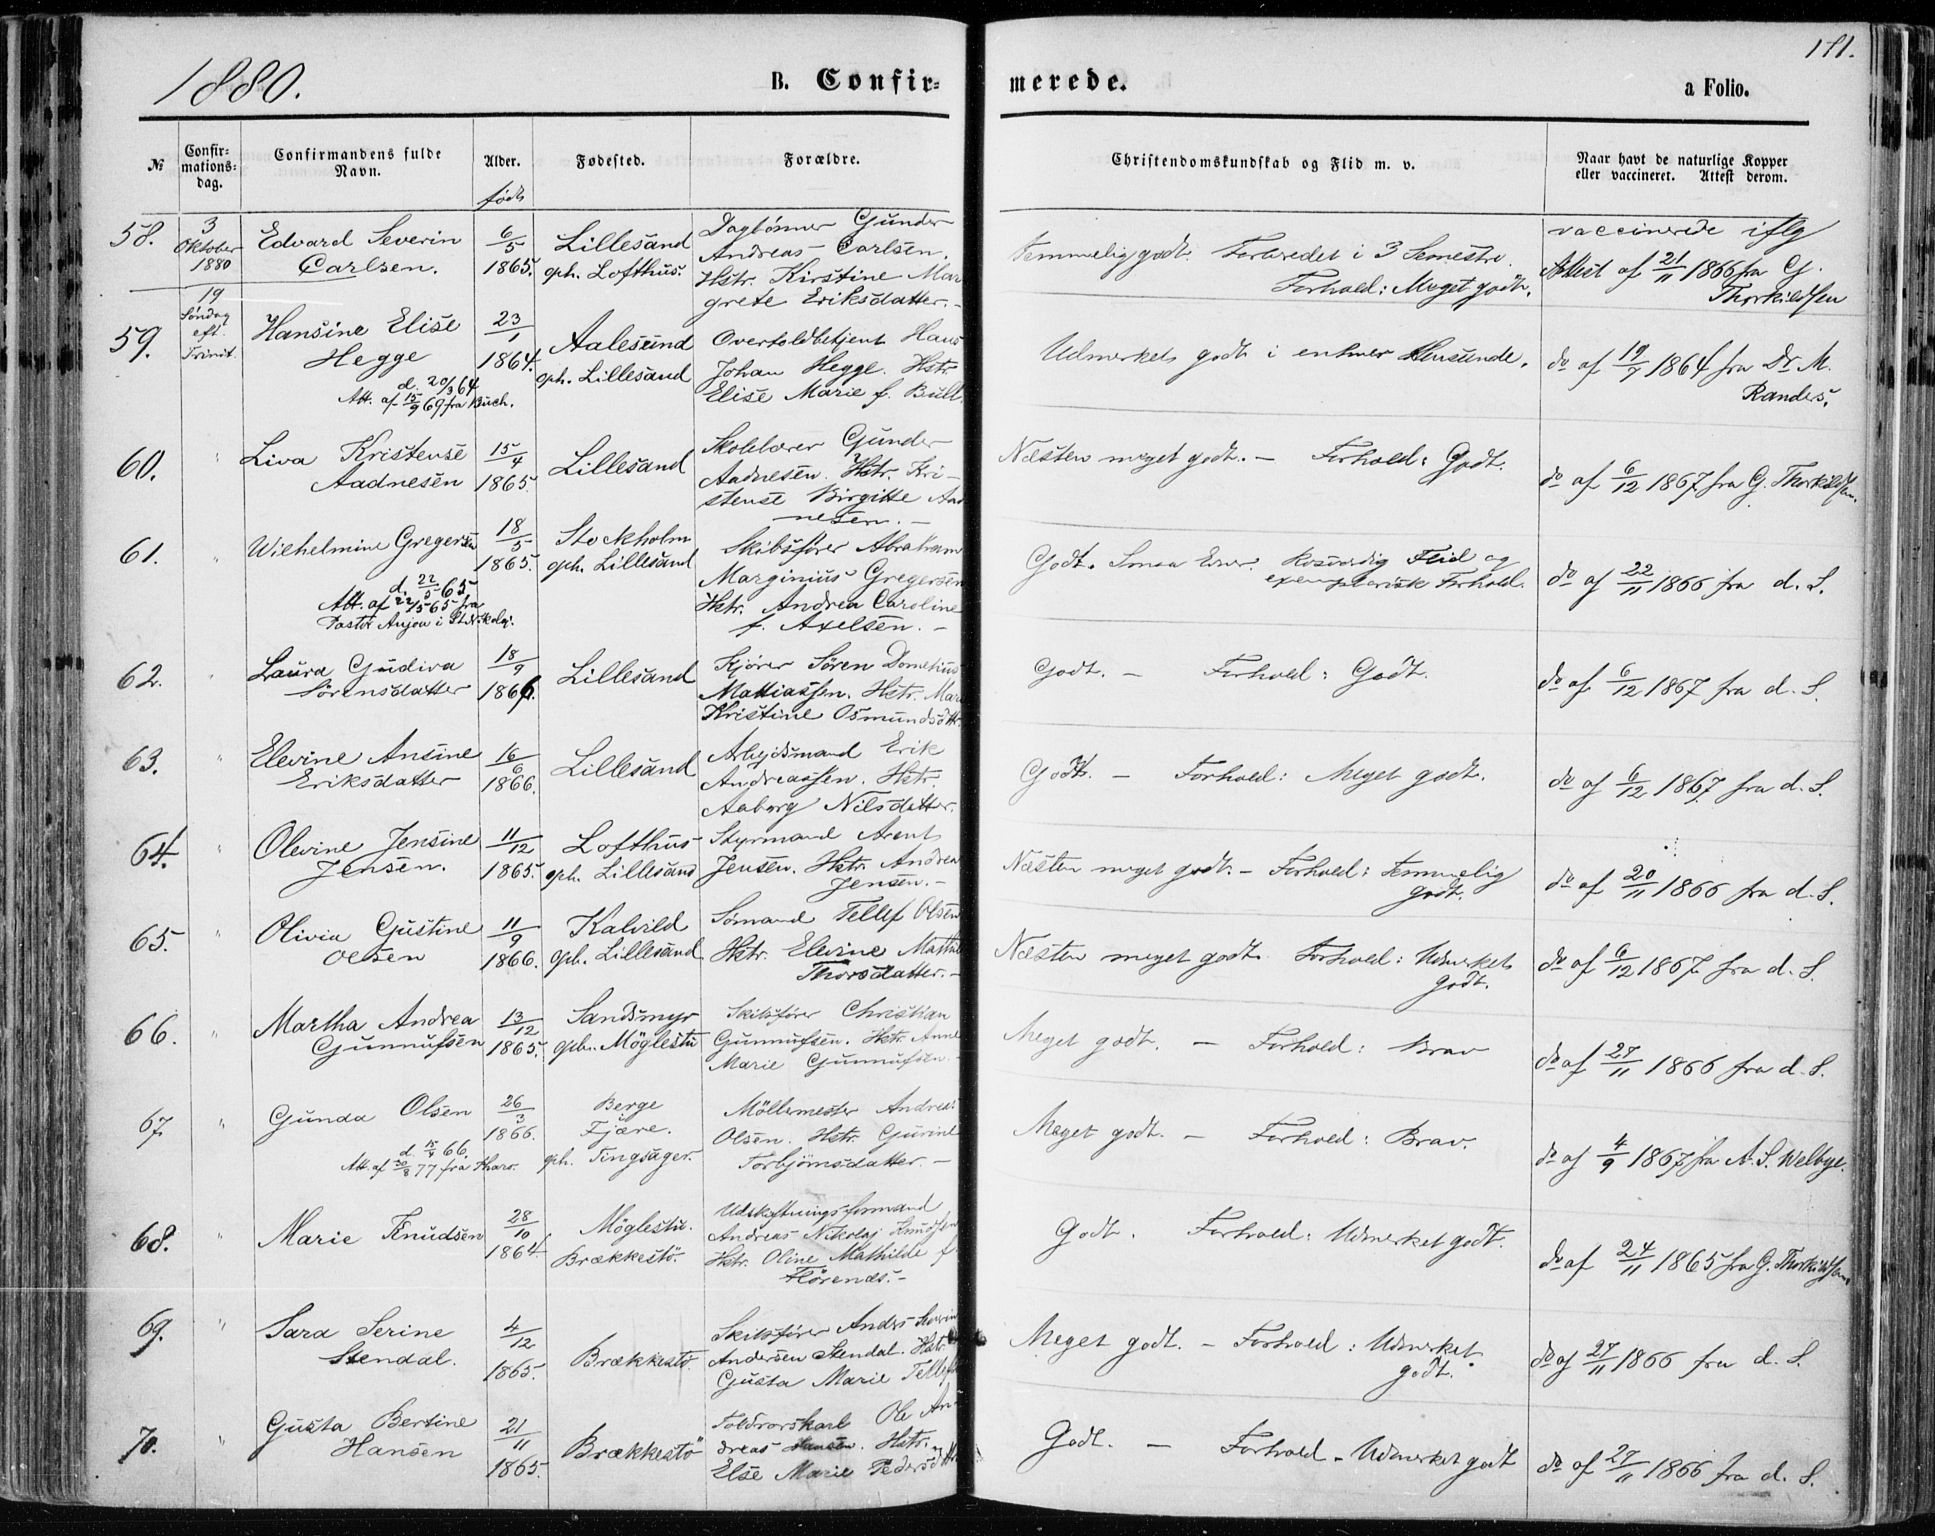 1880.
B. Confir-
merede.
a Folio.
181.
№
Confir-
mations-
dag.
Confirmandens fulde
Navn.
Alder.
født
Fødested.
Forældre.
Christendomskundskab og Flid m. v.
Naar havt de naturlige Kopper
eller vaccineret. Attest derom.
58.
3
Oktober
1880
19
Søndag
eft.
Trinit.
Edvard Severin
Carlsen.
6/5
1865.
Lillesand
oph. Lofthus.
Gunder
Andreas Carlsen.
Hstr. Kirstine Mar
grete Eriksdatter.
Temmelig godt. Forberedet i 3 Semestre.
Forhold: Meget godt.
vaccinerede iflg
Attest af 21/11 1866 fra G.
Thorkildsen
59.
Hansine Elise
Hegge
d. 20/3 64
Att. af 15/9 69 fra Buch.
23/1
1864.
Aalesund
oph. Lillesand
Overtoldbetjent Hans
Johan Hegge. Hstr.
Elise Marie f. Bull.
Udmerket godt i enhver Henseende.
do af 19/7 1864 fra Dr. M.
Randers.
60.
"
Liva Kristense
Aadnesen
15/4
1865.
Lillesand
Skolelærer Gunder
Aadnesen. Hstr. Kri-
stense Birgitte Aad
nesen. -
Næsten meget godt. - Forhold: Godt.
do af 6/12 1867 fra G. Thorkildsen.
61.
"
Wilhelmine Gregersen
d. 22/5 65
Att. af 22/5 65 fra
Pastor Anjou i Stockholm.
18/5
1865.
Stockholm
oph. Lillesand
Skibsfører Abraham
Marginius Gregersen
Hstr. Andrea Caroline
f. Axelsen. -
Godt. Smaa Evner. Rosværdig Flid og
exemplarisk Forhold.
do af 22/11 1866 fra d. S.
62.
"
Laura Gudiva
Sørensdatter
18/9
1866.
Lillesand
Kjører Søren Dometius
Mattiassen. Hstr. Mar
Kristine Osmundsdtr.
Godt. - Forhold: Godt.
do af 6/12 1867 fra d. S.
63.
"
Elevine Ansine
Eriksdatter
16/6
1866.
Lillesand
Arbejdsmand Erik
Andreassen. Hstr.
Aaborg Nilsdatter.
Godt. - Forhold: Meget godt.
do af 6/12 1867. fra d. S.
64.
"
Olevine Jensine
Jensen.
11/12
1865.
Lofthus
oph. Lillesand
Styrmand Arent
Jensen. Hstr. Andrea
Jensen. -
Næsten meget godt. - Forhold: Temmelig
godt.
do af 20/11 1866 fra d. S.
65.
"
Olivia Gustine
Olsen
11/9
1866.
Kalvild
oph. Lillesand
Sømand Tellef Olsen
Hstr. Elevine Mathil
Thorsdatter. -
Næsten meget godt. Forhold: Udmerket
godt.
do af 6/12 1867 fra d. S.
66.
"
Martha Andrea
Gunnufsen
13/12
1865.
Sandsmyr
oph. Møglestu
Skibsfører Christian
Gunnufsen. Hstr. Anne
Marie Gunnufsen -
Meget godt. - Forhold: Brav
do af 27/11 1866 fra d. S.
67.
"
Gunda Olsen
d. 15/4 66.
Att. af 30/8 77 fra
26/3
1866.
Berge
i
Fjære.
oph. Tingsager.
Møllemester Andreas
Olsen. Hstr. Gurine
Torbjørnsdatter. -
Meget godt. - Forhold: Brav.
do af 4/9 1867 fra A. S. Welbye.
68.
"
Marie Knudsen
28/10
1864.
Møglestu.
Brækkestø.
Udskiftningsformand
Andreas Nikolaj Knudsen
Hstr. Oline Mathilde f.
Flørenæs. -
Godt. Forhold: Udmerket godt.
do af 24/11 1865 fra G. Thorkildsen
69.
"
Sara Serine
Stendal.
4/12
1865.
Brækkestø
Skibsfører Anders Severin
Andersen Stendal. Hstr.
Gusta Marie Tellefs
Meget godt. - Forhold: Udmerket
godt.
do af 27/11 1866 fra d. S.
70.
"
Gusta Bertine
Hansen
21/11
1865.
Brækkestø
Toldrorskarl Ole An-
dreas Hansen. Hstr.
Else Marie Pedersdtr
Godt. - Forhold - Udmerket godt
do af 27/11 1866 fra d. S.